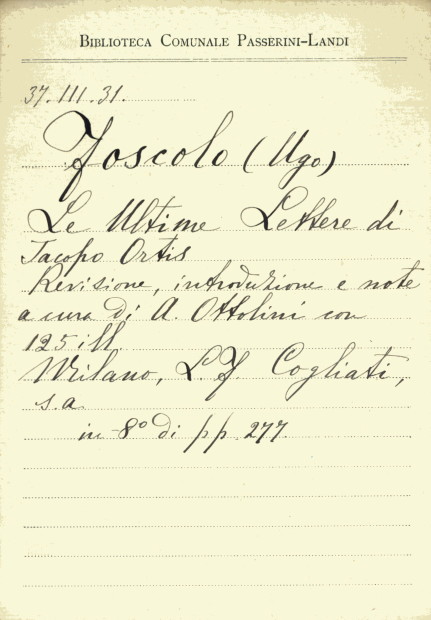 BIBLIOTECA COMUNALE PASSERINI-LANDI
37.III.31.
Foscolo (Ugo)
Le Ultime Lettere di
Jacopo Ortis
Revisione, introduzione e note
a cura di A. Ottolini con
125 ill
Milano, L. F. Cogliati,
s. a.
in 8° di pp. 277.